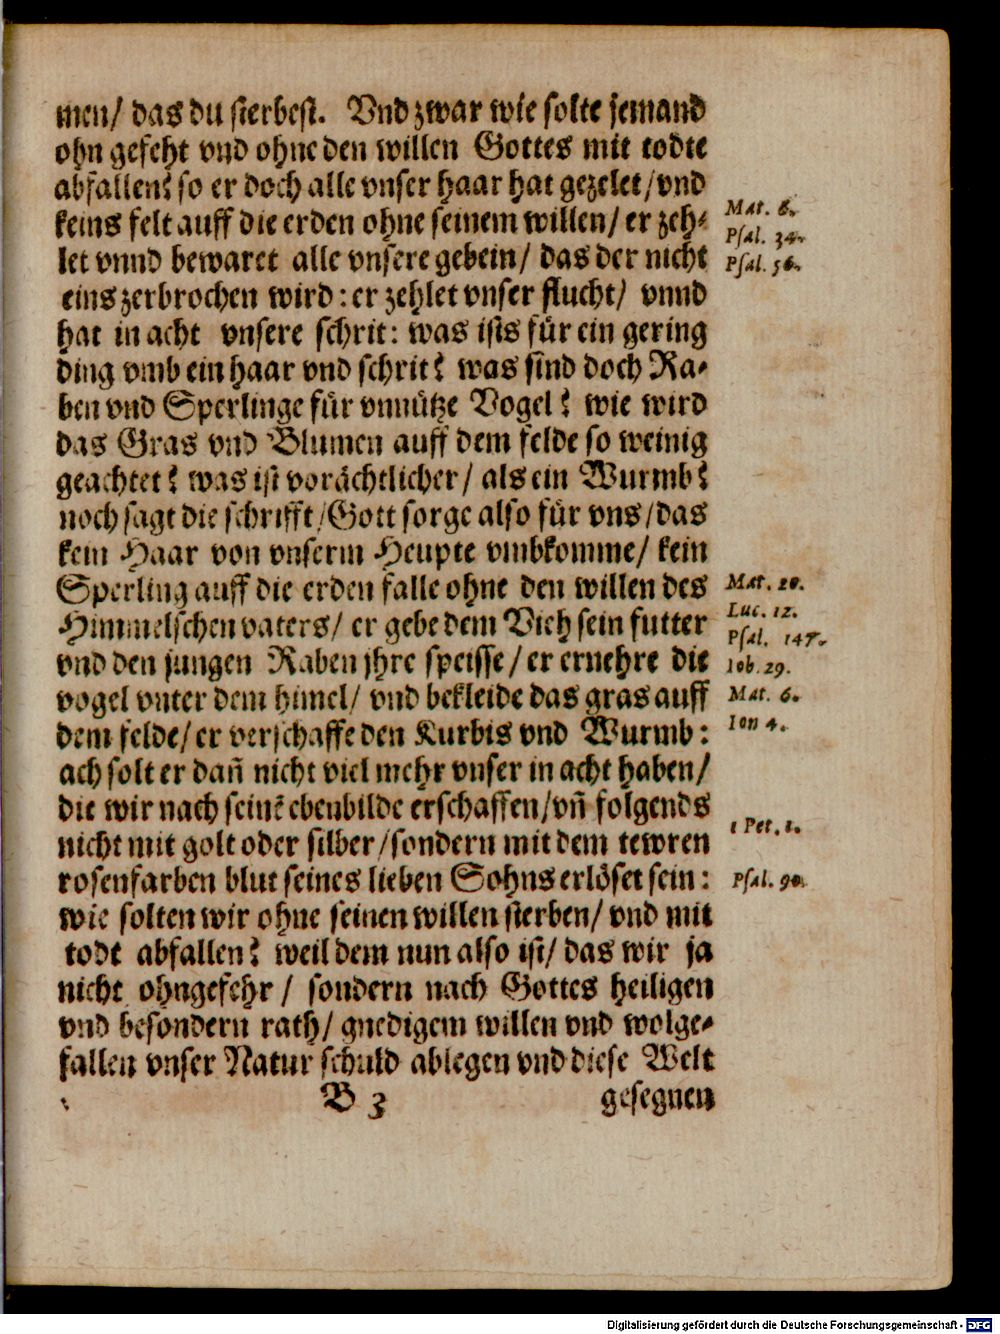 men/ das du sterbest. Vnd zwar wie solte jemand
ohn gefeht vnd ohne den willen Gottes mit todte
abfallen? so er doch alle vnser haar hat gezelet/vnd
keins felt auff die erden ohne seinem willen/ er zeh-
let vnnd bewaret alle vnsere gebein/ das der nicht
eins zerbrochen wird: er zehlet vnser flucht/ vnnd
hat in acht vnsere schrit: was ists für ein gering
ding vmb ein haar vnd schrit? was sind doch Ra-
ben vnd Sperlinge für vnnütze Vogel? wie wird
das Gras vnd Blumen auff dem felde so weinig
geachtet? was ist vorächtlicher/ als ein Wurmb?
noch sagt die schrifft/Gott sorge also für vns/das
kein Haar von vnserm Heupte vmbkomme/ kein
Sperling auff die erden falle ohne den willen des
Himmelschen vaters/ er gebe dem Vieh sein futter
vnd den jungen Raben jhre speisse/er ernehre die
vogel vnter dem himel/ vnd bekleide das gras auff
dem felde/er verschaffe den Kurbis vnd Wurmb:
ach solt er dañ nicht viel mehr vnser in acht haben/
die wir nach seinē ebenbilde erschaffen/vñ folgends
nicht mit golt oder silber/sondern mit dem tewren
rosenfarben blut seines lieben Sohns erlöset sein:
wie solten wir ohne seinen willen sterben/ vnd mit
todt abfallen? weil dem nun also ist/ das wir ja
nicht ohngefehr/ sondern nach Gottes heiligen
vnd besondern rath/ gnedigem willen vnd wolge-
fallen vnser Natur schuld ablegen vnd diese Welt
B 3 gesegnen
Mat. 6.
Psal. 34.
Psal. 56.
Mat. 10.
Luc. 12.
Psal. 147.
Iob. 29.
Mat. 6.
Ion 4.
1 Pet. 1.
Psal. 90.
Digitalisierung gefördert durch die Deutsche Forschungsgemeinschaft - DFG